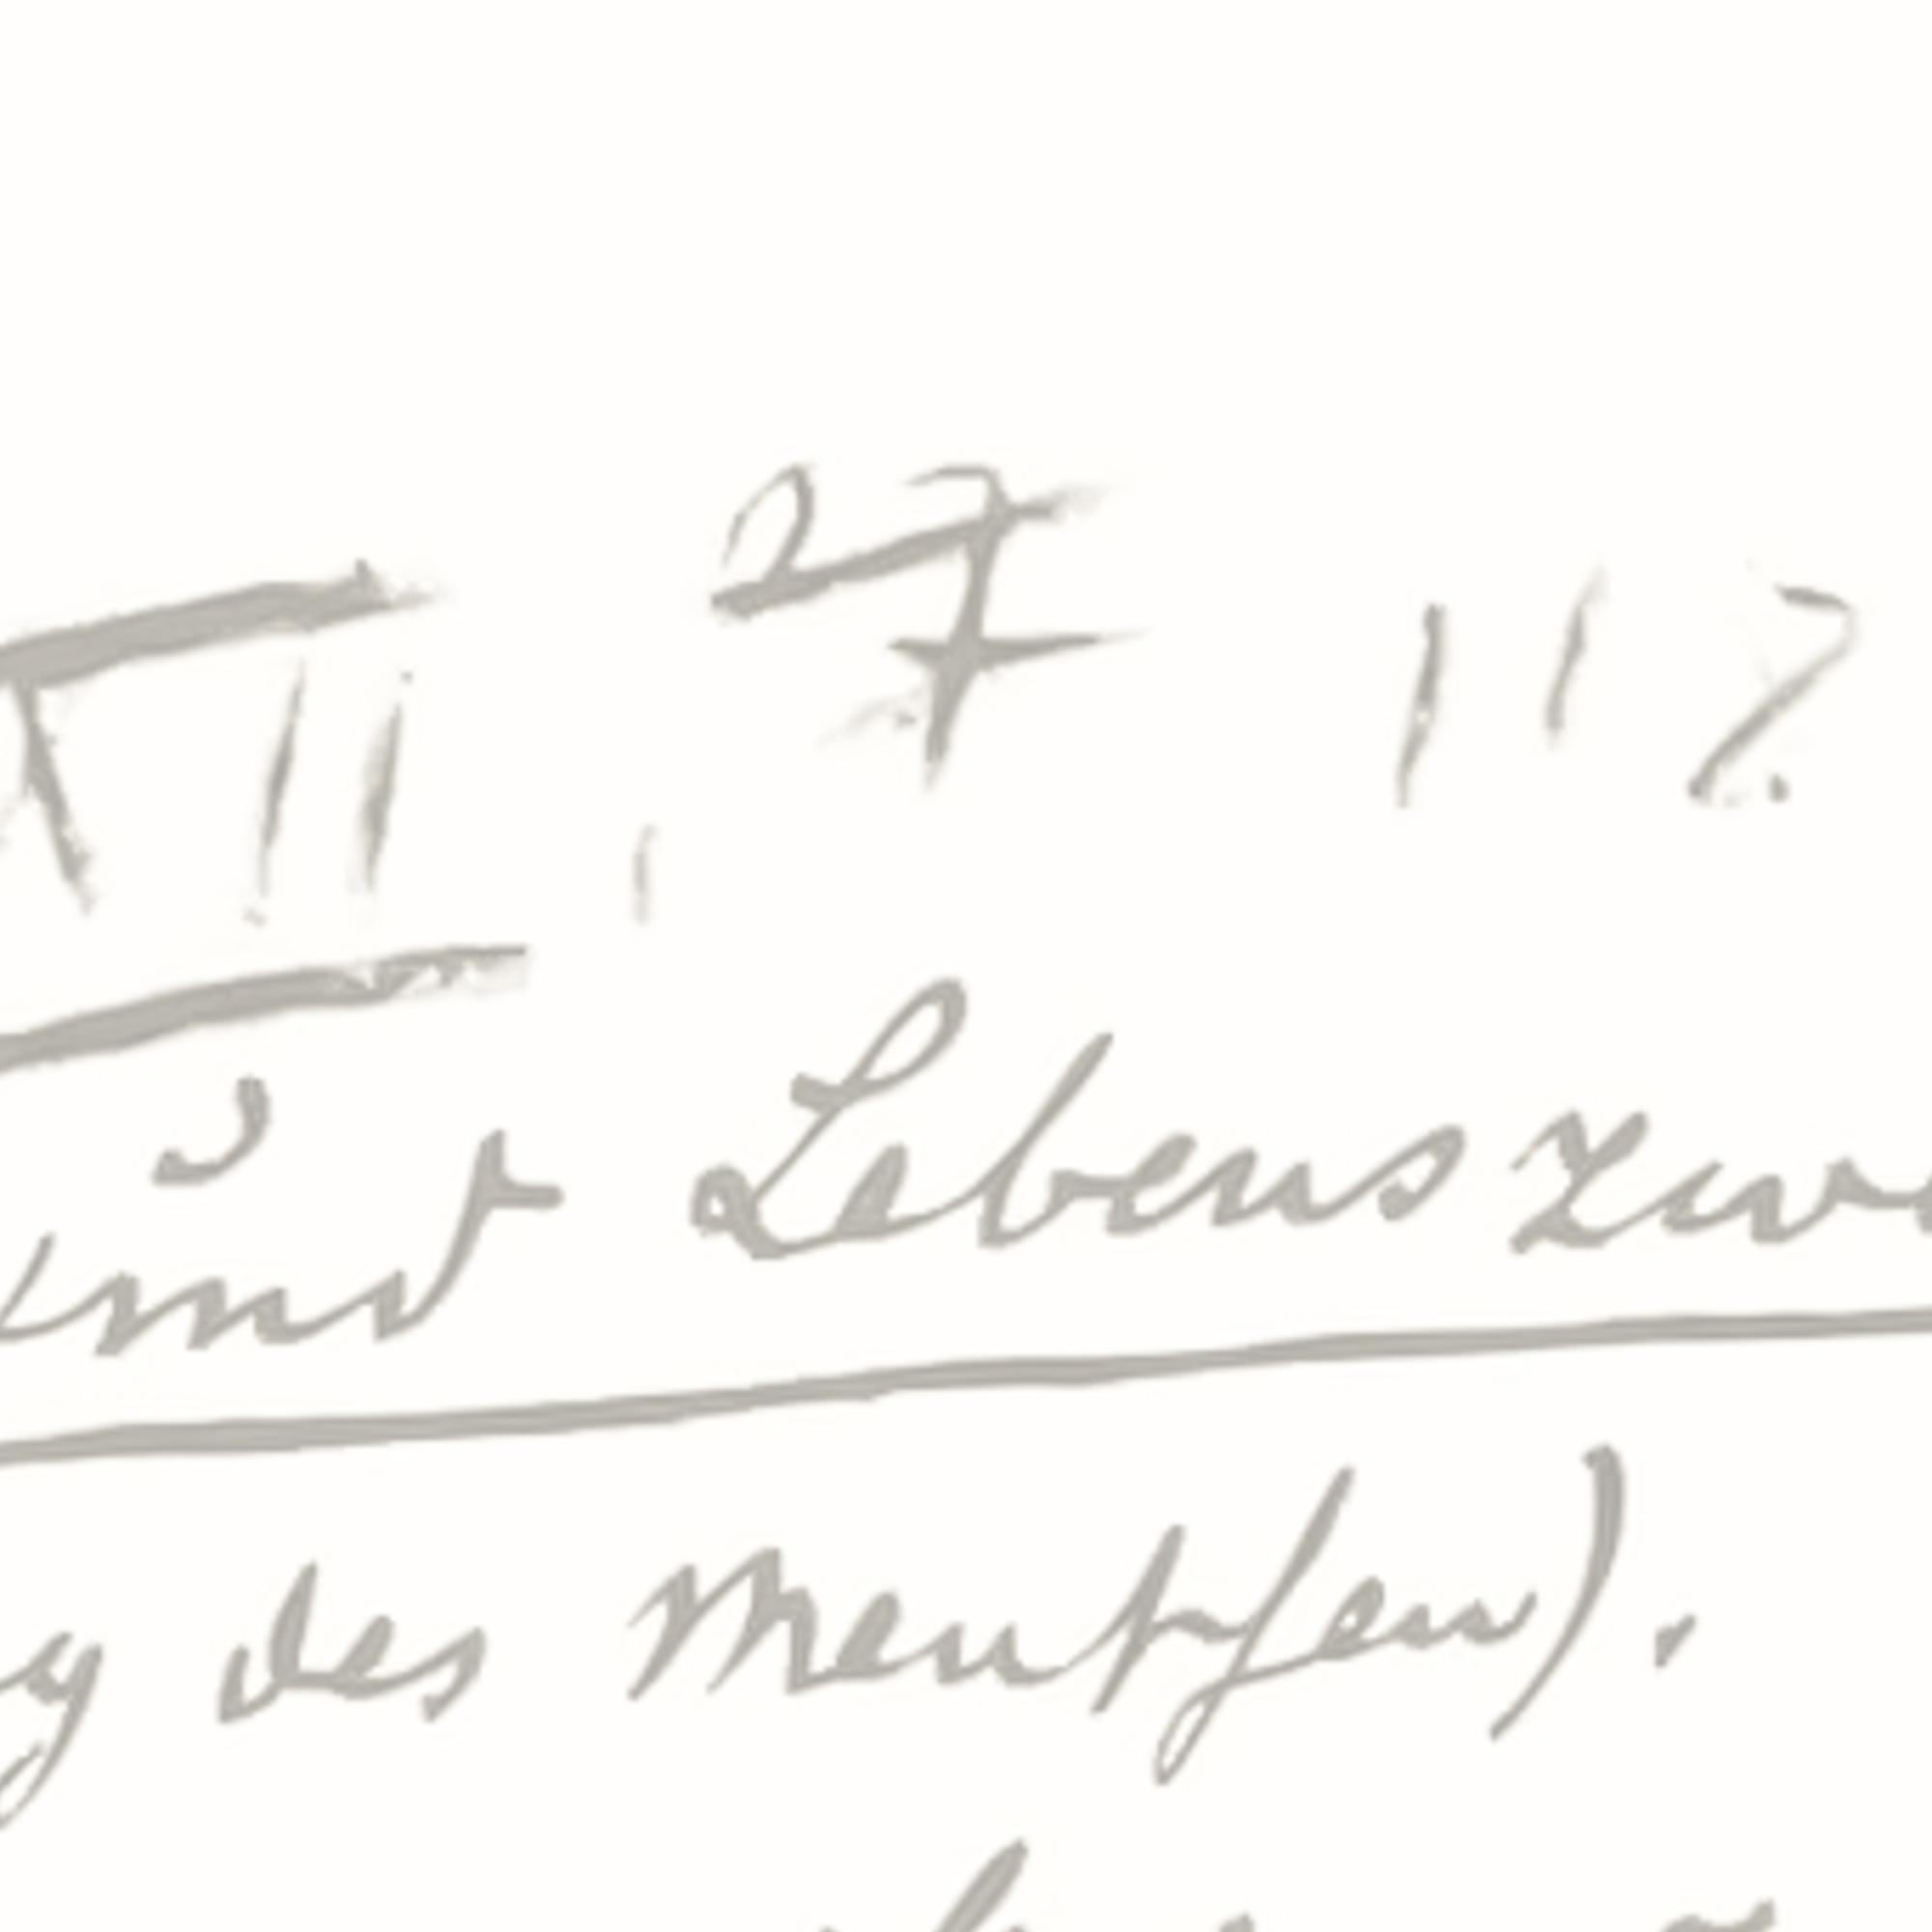 XII, 27 112.
und Lebenszwe
des Menschen).